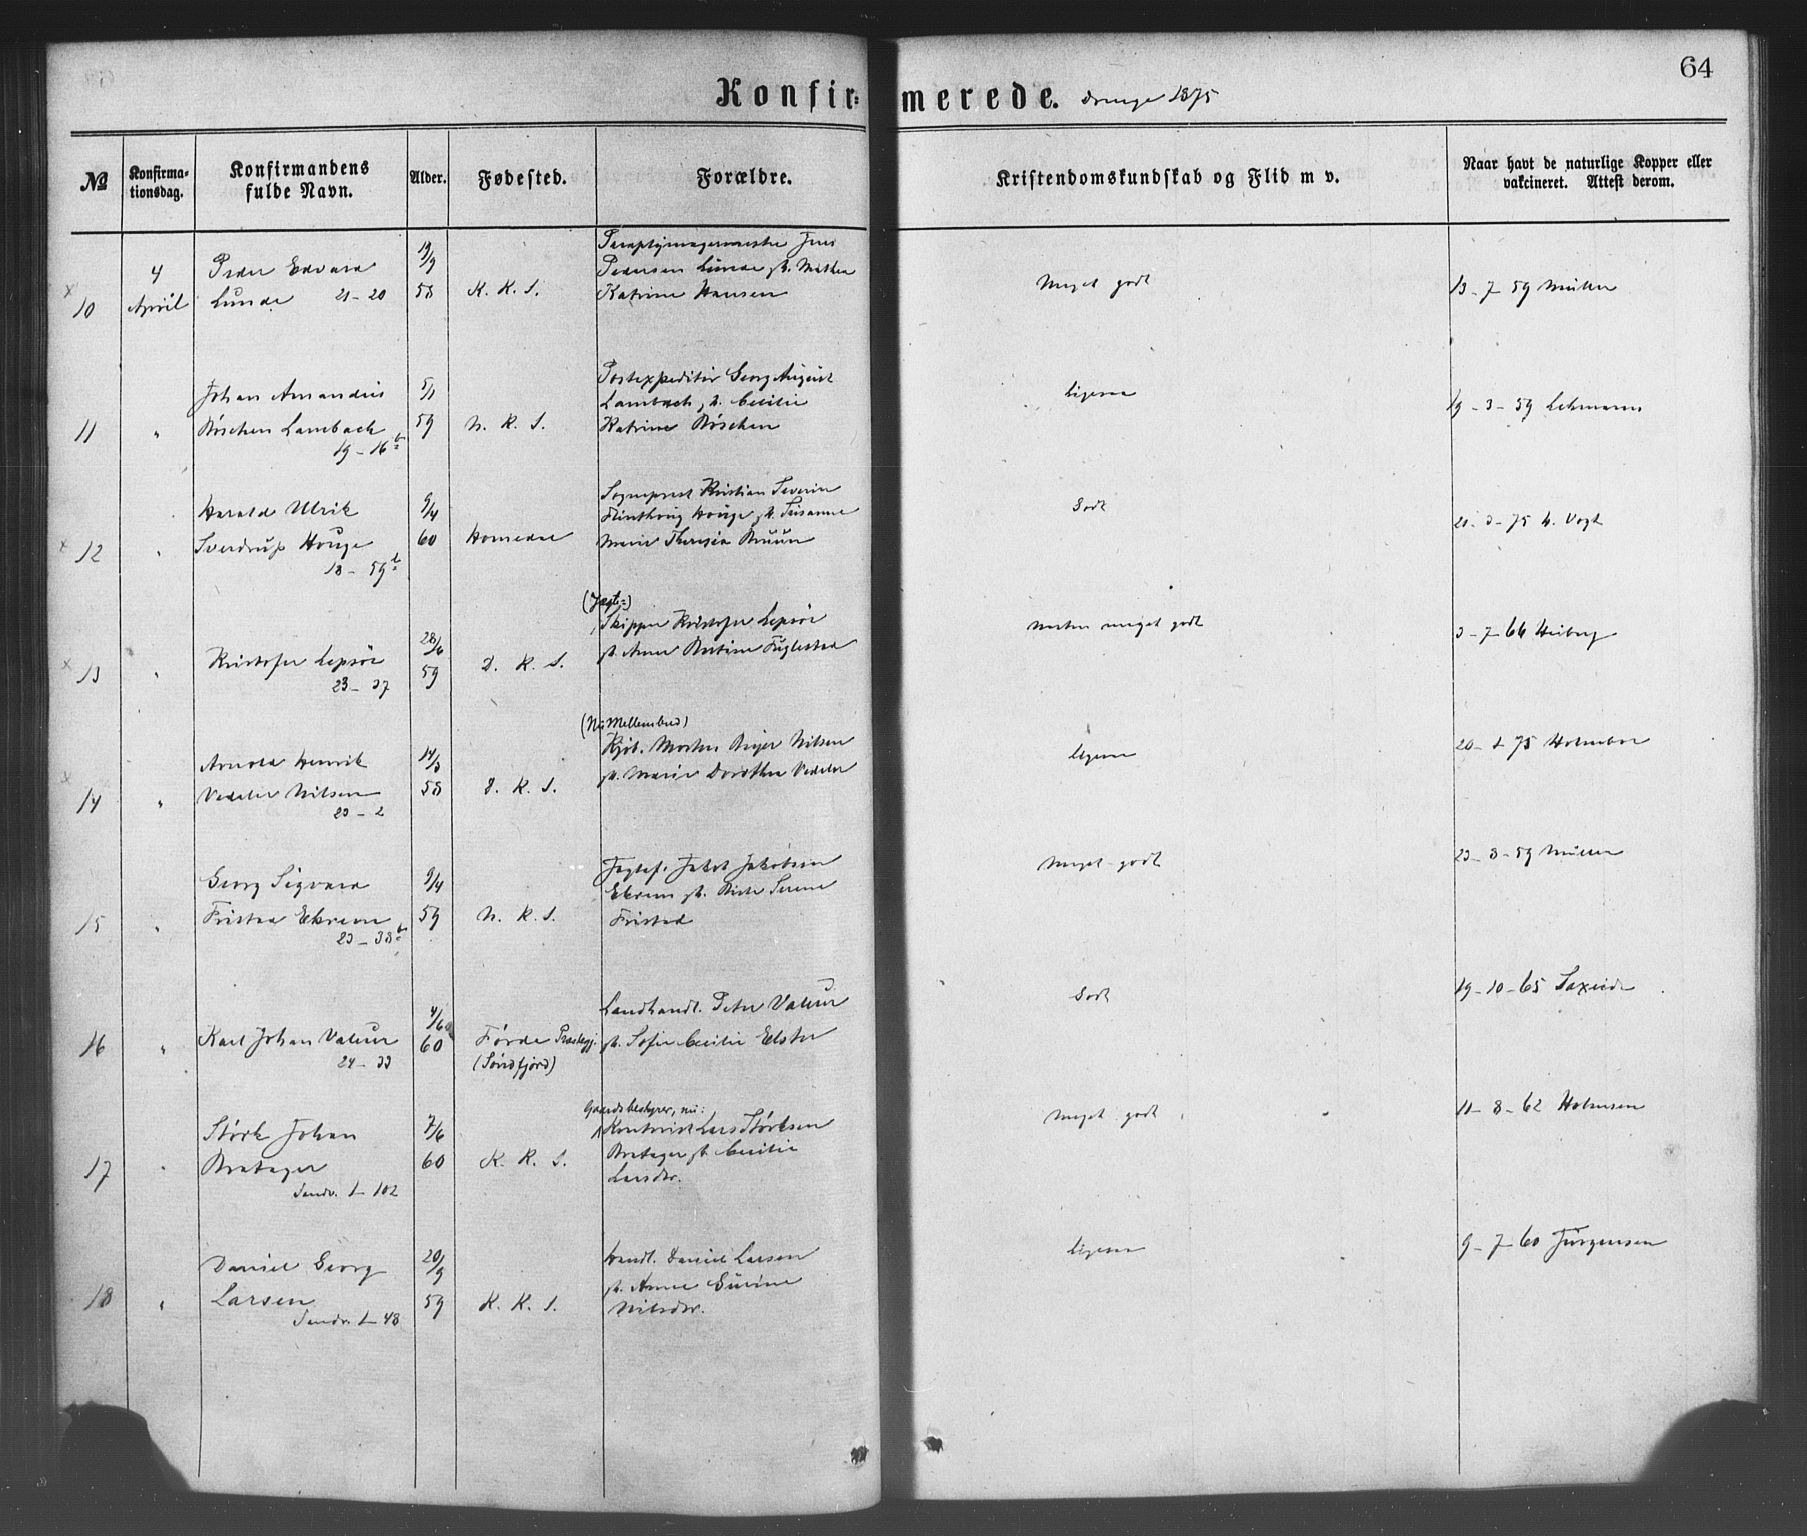 64
Konfirmerede. Drenge 1875
№
Konfirma-
tionsdag.
Konfirmandens
fulde Navn.
Alder.
Fødested.
Forældre.
Kristendomskundskab og Flid m v.
Naar havt de naturlige Kopper eller
vakcineret. Attest derom.
x
10
4
April
Peder Edvard
Lunde 21-20
19/9
58
K. K. S.
Jens
Pedersen Lunde
Katrine Hansen
Meget godt
13-7-59 Müller
11
"
Johan Amandus
Röschen Lambach
19-16
5/1
59
N. K. S.
Postexpeditör Georg August
Lambach Cecilie
Katrine Röschen
ligesaa
19-3-59 Lehmann
x
12
"
Harald Ulrik
Sverdrup Houge
18-59
9/4
60
Sogneprest Kristian Severin
Flinthoug Houge Susanne
Marie Theresia Bruun
Godt
21-3-75 Vogt
x
13
"
Kristofer Lepsöe
23-37
28/6
59
D. K. S.
(Jagte=)
Skipper Kristofer Lepsöe
Anne Fuglestad
Næsten meget godt
3-7-66 Heiberg
x
14
"
Arnold Henrik
Vedeler Nilsen
23-2
14/3
58
D. K. S.
(Nu Mellembud)
Kjöb. Morten Beyer Nilsen
Marie Dorothea Vedeler
ligesaa
20-1-75 Holmboe
15
"
Georg Sigvard
Fristad Ekrem
23-38
9/4
59
N. K. S.
Jagtef. Jakob Jakobsen
Ekrem Serene
Fristad
Meget godt
23-8-59 Müller
16
"
Karl Johan Valeur
24-33
4/6
60
Førde Præstegj.
(Søndfjord)
Landhandl. Peter Valeur
Sofie Cecilie Elster
Godt
19-10-65
17
"
Störk Johan
Bratager
Sandv. 1-102
7/6
60
K. K. S.
Gaardsbestyrer, nu:
Kontorist Lars Störksen
Bratager Cecilie
Larsdtr.
Meget godt
11-8-62 Holmsen
18
"
Daniel Georg
Larsen
Sandv. 1-48
20/9
59
K. K. S.
Handl. Daniel Larsen
Anne Gurine
Nilsdtr.
ligesaa
9-7-60 Jürgensen